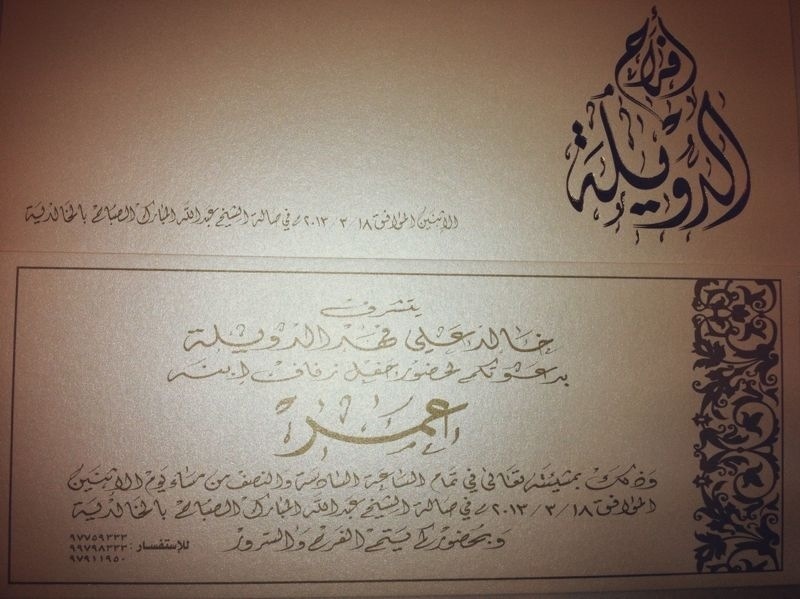 أفراح
الدويلة
الاثنين الموافق ١٨ / ٣ / ٢٠١٣ م في صالة الشيخ عبدالله المبارك الصباح بالخالدية
يتشرف
خالد علي فهد الدويلة
بدعوتكم لحضور حفل زفاف إبنه
عمر
وذلك بمشيئته تعالى في تمام الساعة السادسة والنصف من مساء يوم الاثنين
الموافق ١٨ / ٣ / ٢٠١٣ م في صالة الشيخ عبدالله المبارك الصباح بالخالدية
وبحضوركم يتم الفرح والسرور
للإستفسار : ٩٧٧٥٩٣٣٣
٩٩٧٩٨٣٣٣
٩٧٩١١٩٥٠